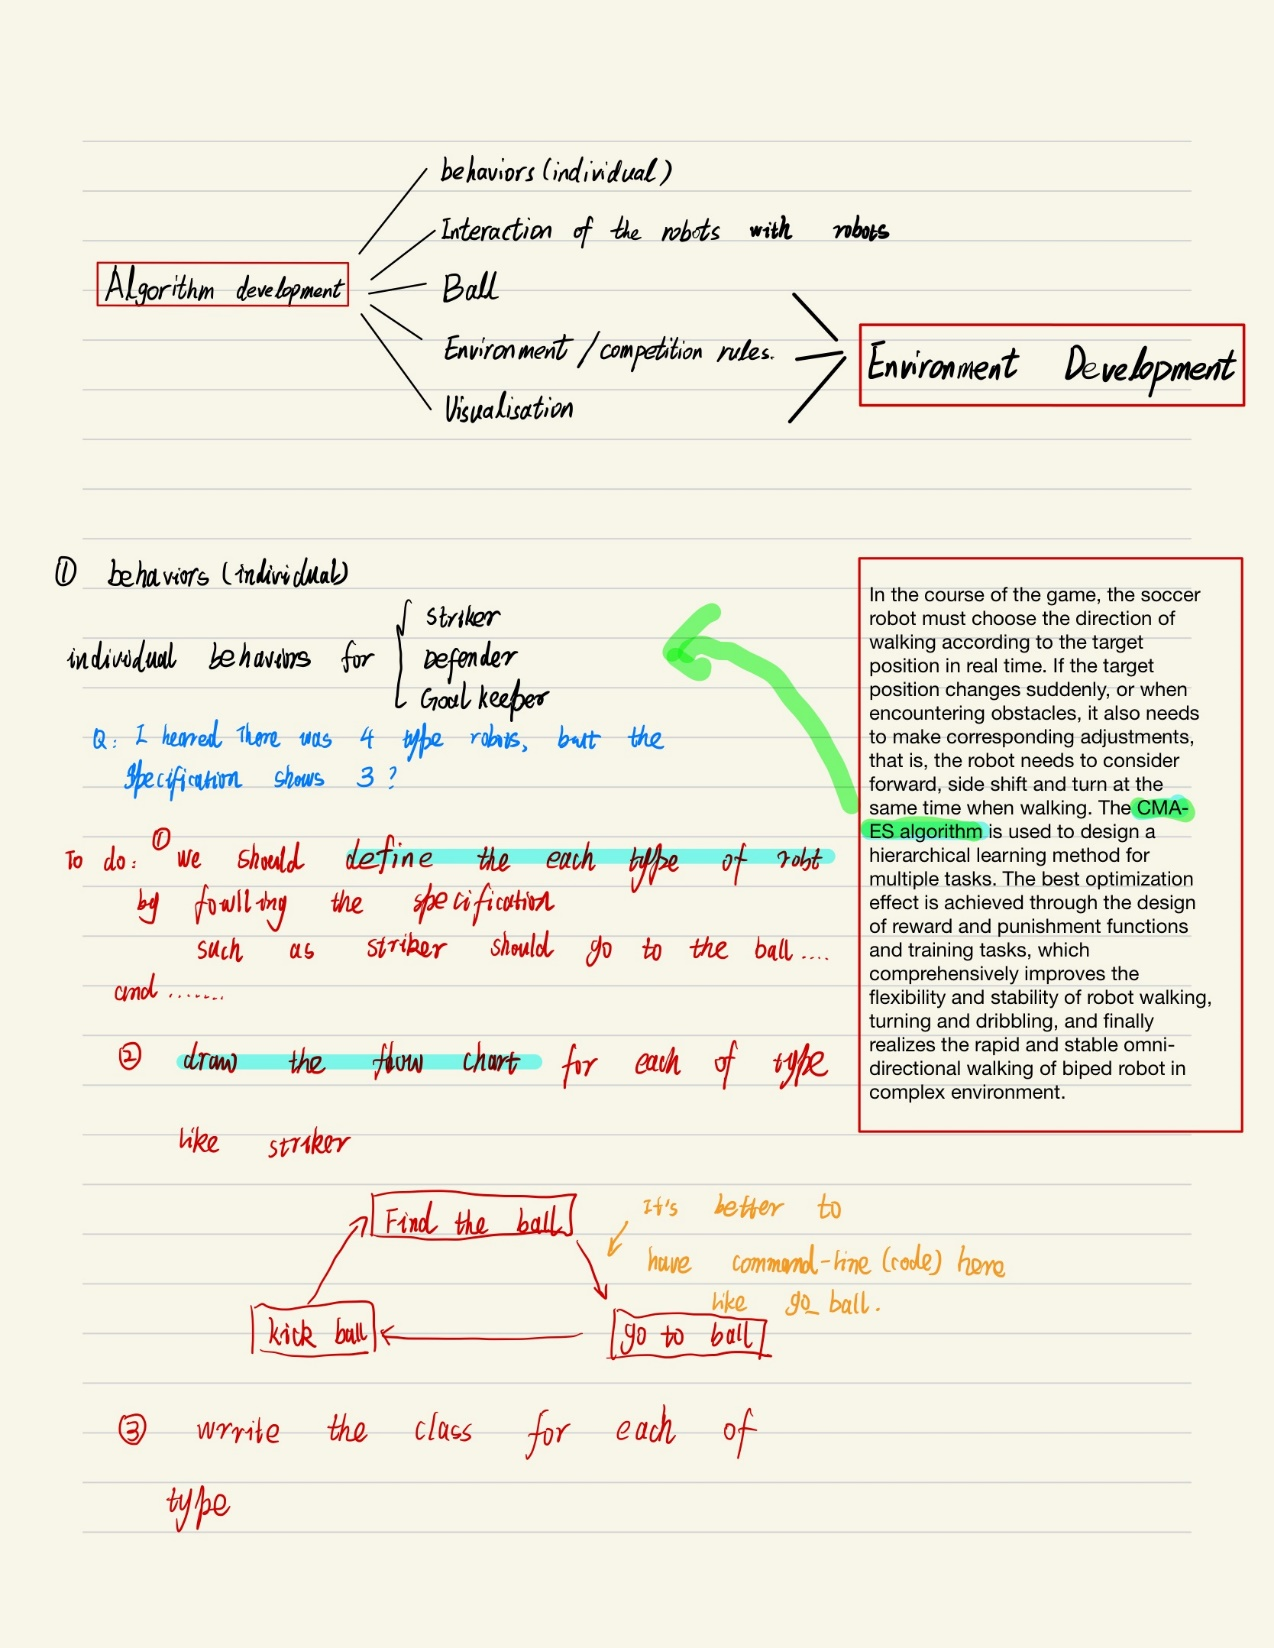 behaviors (individual)
Interaction of the robots with robots
Algorithm development
Ball
Environment / competition rules.
Environment Development
Visualisation
① behaviors (individual)
individual behaviors for
Striker
Defender
Goal keeper
Q: I heared There was 4 type robots, but the
specification shows 3 ?
To do: ① we should define the each type of robt
by fowlling the specification
such as striker should go to the ball ....
and .......
② draw the flow chart for each of type
like striker
Find the ball
It's better to
have command-line (code) here
like go_ball.
kick ball
go to ball
③ wrrite the class for each of
type
In the course of the game, the soccer
robot must choose the direction of
walking according to the target
position in real time. If the target
position changes suddenly, or when
encountering obstacles, it also needs
to make corresponding adjustments,
that is, the robot needs to consider
forward, side shift and turn at the
same time when walking. The CMA-
ES algorithm is used to design a
hierarchical learning method for
multiple tasks. The best optimization
effect is achieved through the design
of reward and punishment functions
and training tasks, which
comprehensively improves the
flexibility and stability of robot walking,
turning and dribbling, and finally
realizes the rapid and stable omni-
directional walking of biped robot in
complex environment.